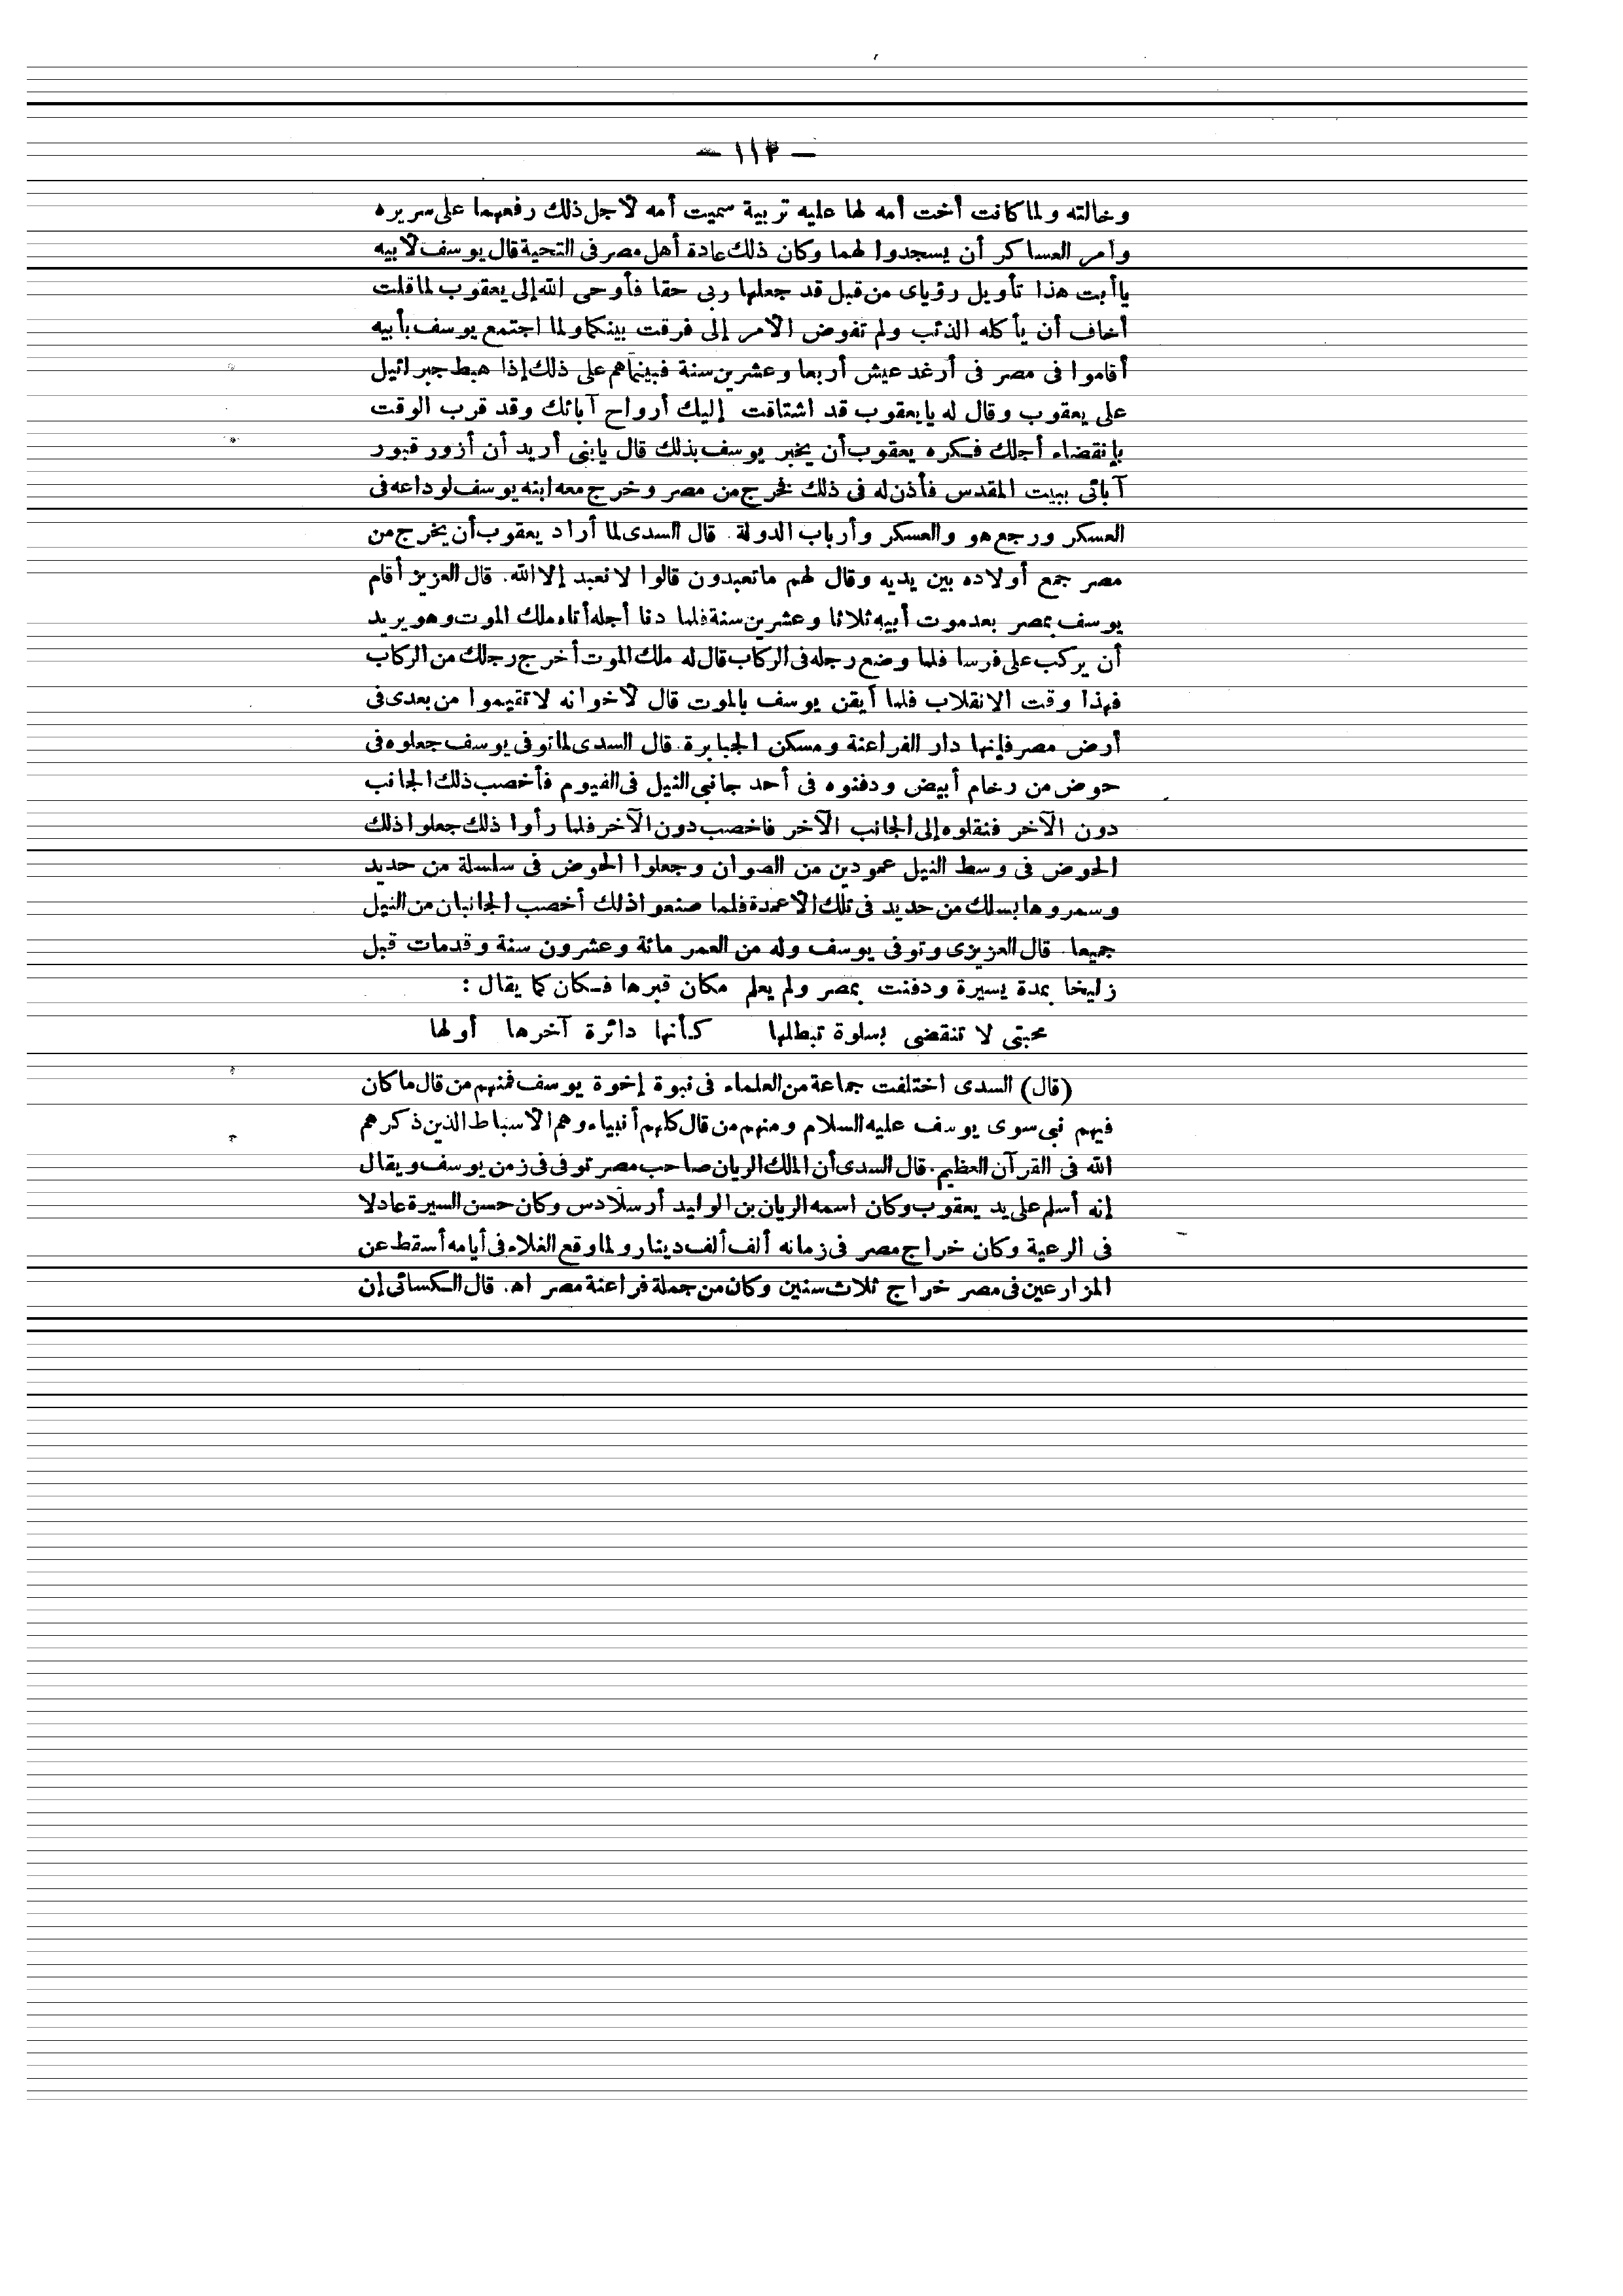 — ١١٣ —
وخالته ولما كانت أخت أمه لها عليه تربية سميت أمه لأجل ذلك رفعهما على سريره
وأمر العساكر أن يسجدوا لهما وكان ذلك عادة أهل مصر فى التحية قال يوسف لأبيه
ياأبت هذا تأويل رؤياى من قبل قد جعلها ربى حقا فأوحى الله إلى يعقوب لما قلت
أخاف أن يأكله الذئب ولم تفوض الأمر إلى فرقت بينكما ولما اجتمع يوسف بأبيه
أقاموا فى مصر فى أرغد عيش أربعا وعشرين سنة فبينماهم على ذلك إذا هبط جبرائيل
على يعقوب وقال له يا يعقوب قد اشتاقت إليك أرواح آبائك وقد قرب الوقت
بإنقضاء أجلك فكره يعقوب أن يخبر يوسف بذلك قال يابنى أريد أن أزور قبور
آبائى ببيت المقدس فأذن له فى ذلك فخرج من مصر وخرج معه ابنه يوسف لوداعه فى
العسكر ورجع هو والعسكر وأرباب الدولة. قال السدى لما أراد يعقوب أن يخرج من
مصر جمع أولاده بين يديه وقال لهم ماتعبدون قالوا لا نعبد إلا الله. قال العزيز أقام
يوسف بمصر بعد موت أبيه ثلاثا وعشرين سنة فلما دنا أجله أتاه ملك الموت وهو يريد
أن يركب على فرسا فلما وضع رجله فى الركاب قال له ملك الموت أخرج رجلك من الركاب
فهذا وقت الانقلاب فلما أيقن يوسف بالموت قال لأخوانه لا تقيموا من بعدى فى
أرض مصر فإنها دار الفراعنة ومسكن الجبابرة. قال السدى لما توفى يوسف جعلوه فى
حوض من رخام أبيض ودفنوه فى أحد جانبى النيل فى الفيوم فأخصب ذلك الجانب
دون الآخر فنقلوه إلى الجانب الآخر فاخصب دون الآخر فلما رأوا ذلك جعلوا ذلك
الحوض فى وسط النيل عمودين من الصوان وجعلوا الحوض فى سلسلة من حديد
وسمروها بسلك من حديد فى تلك الأعمدة فلما صنعوا ذلك أخصب الجانبان من النيل
جميعا. قال العزيزى وتوفى يوسف وله من العمر مائة وعشرون سنة وقدمات قبل
زليخا بمدة يسيرة ودفنت بمصر ولم يعلم مكان قبرها فكان كما يقال :
محبتى لا تنقضى بسلوة تبطلها كأنها دائرة آخرها أولها
(قال) السدى اختلفت جماعة من العلماء فى نبوة إخوة يوسف فمنهم من قال ما كان
فيهم نبى سوى يوسف عليه السلام ومنهم من قال كلهم أنبياء وهم الأسباط الذين ذكرهم
الله فى القرآن العظيم. قال السدى أن الملك الريان صاحب مصر توفى فى زمن يوسف ويقال
إنه أسلم على يد يعقوب وكان اسمه الريان بن الوليد أرسلادس وكان حسن السيرة عادلا
فى الرعية وكان خراج مصر فى زمانه ألف ألف دينار ولما وقع الغلاء فى أيامه أسقط عن
المزارعين فى مصر خراج ثلاث سنين وكان من جملة فراعنة مصر اه. قال الكسائى إن